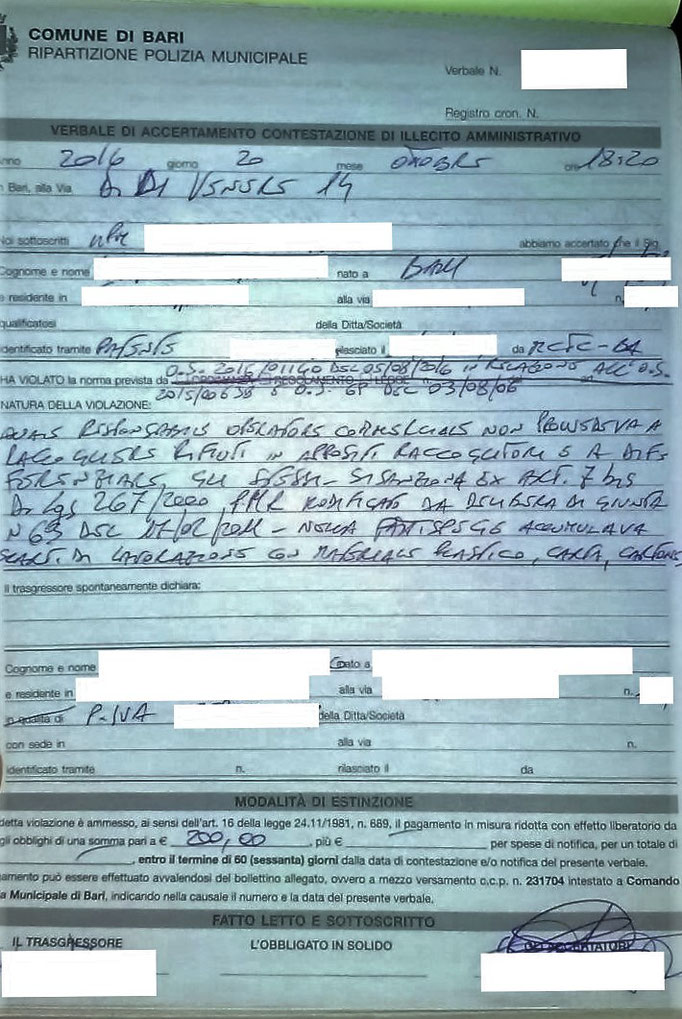 COMUNE DI BARI
RIPARTIZIONE POLIZIA MUNICIPALE
Verbale N.
Registro cron. N.
VERBALE DI ACCERTAMENTO CONTESTAZIONE DI ILLECITO AMMINISTRATIVO
nno 2016 giorno 20 mese OTTOBRE ore 18:20
n Bari, alla Via DI VENERE 14
Noi sottoscritti abbiamo accertato che il Sig.
Cognome e nome nato a BARI
e residente in alla via n.
qualificatosi della Ditta/Società
identificato tramite PATENTE rilasciato il da MCTC-BA
O.S. 2016/01140 DEL 05/08/2016 IN RELAZIONE ALL'O.S.
HA VIOLATO la norma prevista da ORDINANZA REGOLAMENTO LEGGE n.
2015/00630 E O.S. DEL 03/08/06
NATURA DELLA VIOLAZIONE:
QUALE RESPONSABILE OPERATORE COMMERCIALE NON PROVVEDEVA A
RACCOGLIERE RIFIUTI IN APPOSITI RACCOGLITORI E A DIFF
ERENZIARE GLI STESSI - SI SANZIONA EX ART. 7 bis
D. Lgs 267/2000 P.M.R. MODIFICATO DA DELIBERA DI GIUNTA
N 63 DEL 17/02/2011 - NELLA FATTISPECIE ACCUMULAVA
SCARTI DI LAVORAZIONE CON MATERIALE PLASTICO, CARTA, CARTONE,
Il trasgressore spontaneamente dichiara:
Cognome e nome nato a
e residente in alla via n.
in qualità di P-IVA della Ditta/Società
con sede in alla via n.
identificato tramite n. rilasciato il da
MODALITÀ DI ESTINZIONE
detta violazione è ammesso, ai sensi dell'art. 16 della legge 24.11/1981, n. 689, il pagamento in misura ridotta con effetto liberatorio da
gli obblighi di una somma pari a € 200,00 , più € per spese di notifica, per un totale di
, entro il termine di 60 (sessanta) giorni dalla data di contestazione e/o notifica del presente verbale.
amento può essere effettuato avvalendosi del bollettino allegato, ovvero a mezzo versamento c.c.p. n. 231704 intestato a Comando
a Municipale di Bari, indicando nella causale il numero e la data del presente verbale.
FATTO LETTO E SOTTOSCRITTO
IL TRASGRESSORE L'OBBLIGATO IN SOLIDO GLI ACCERTATORI